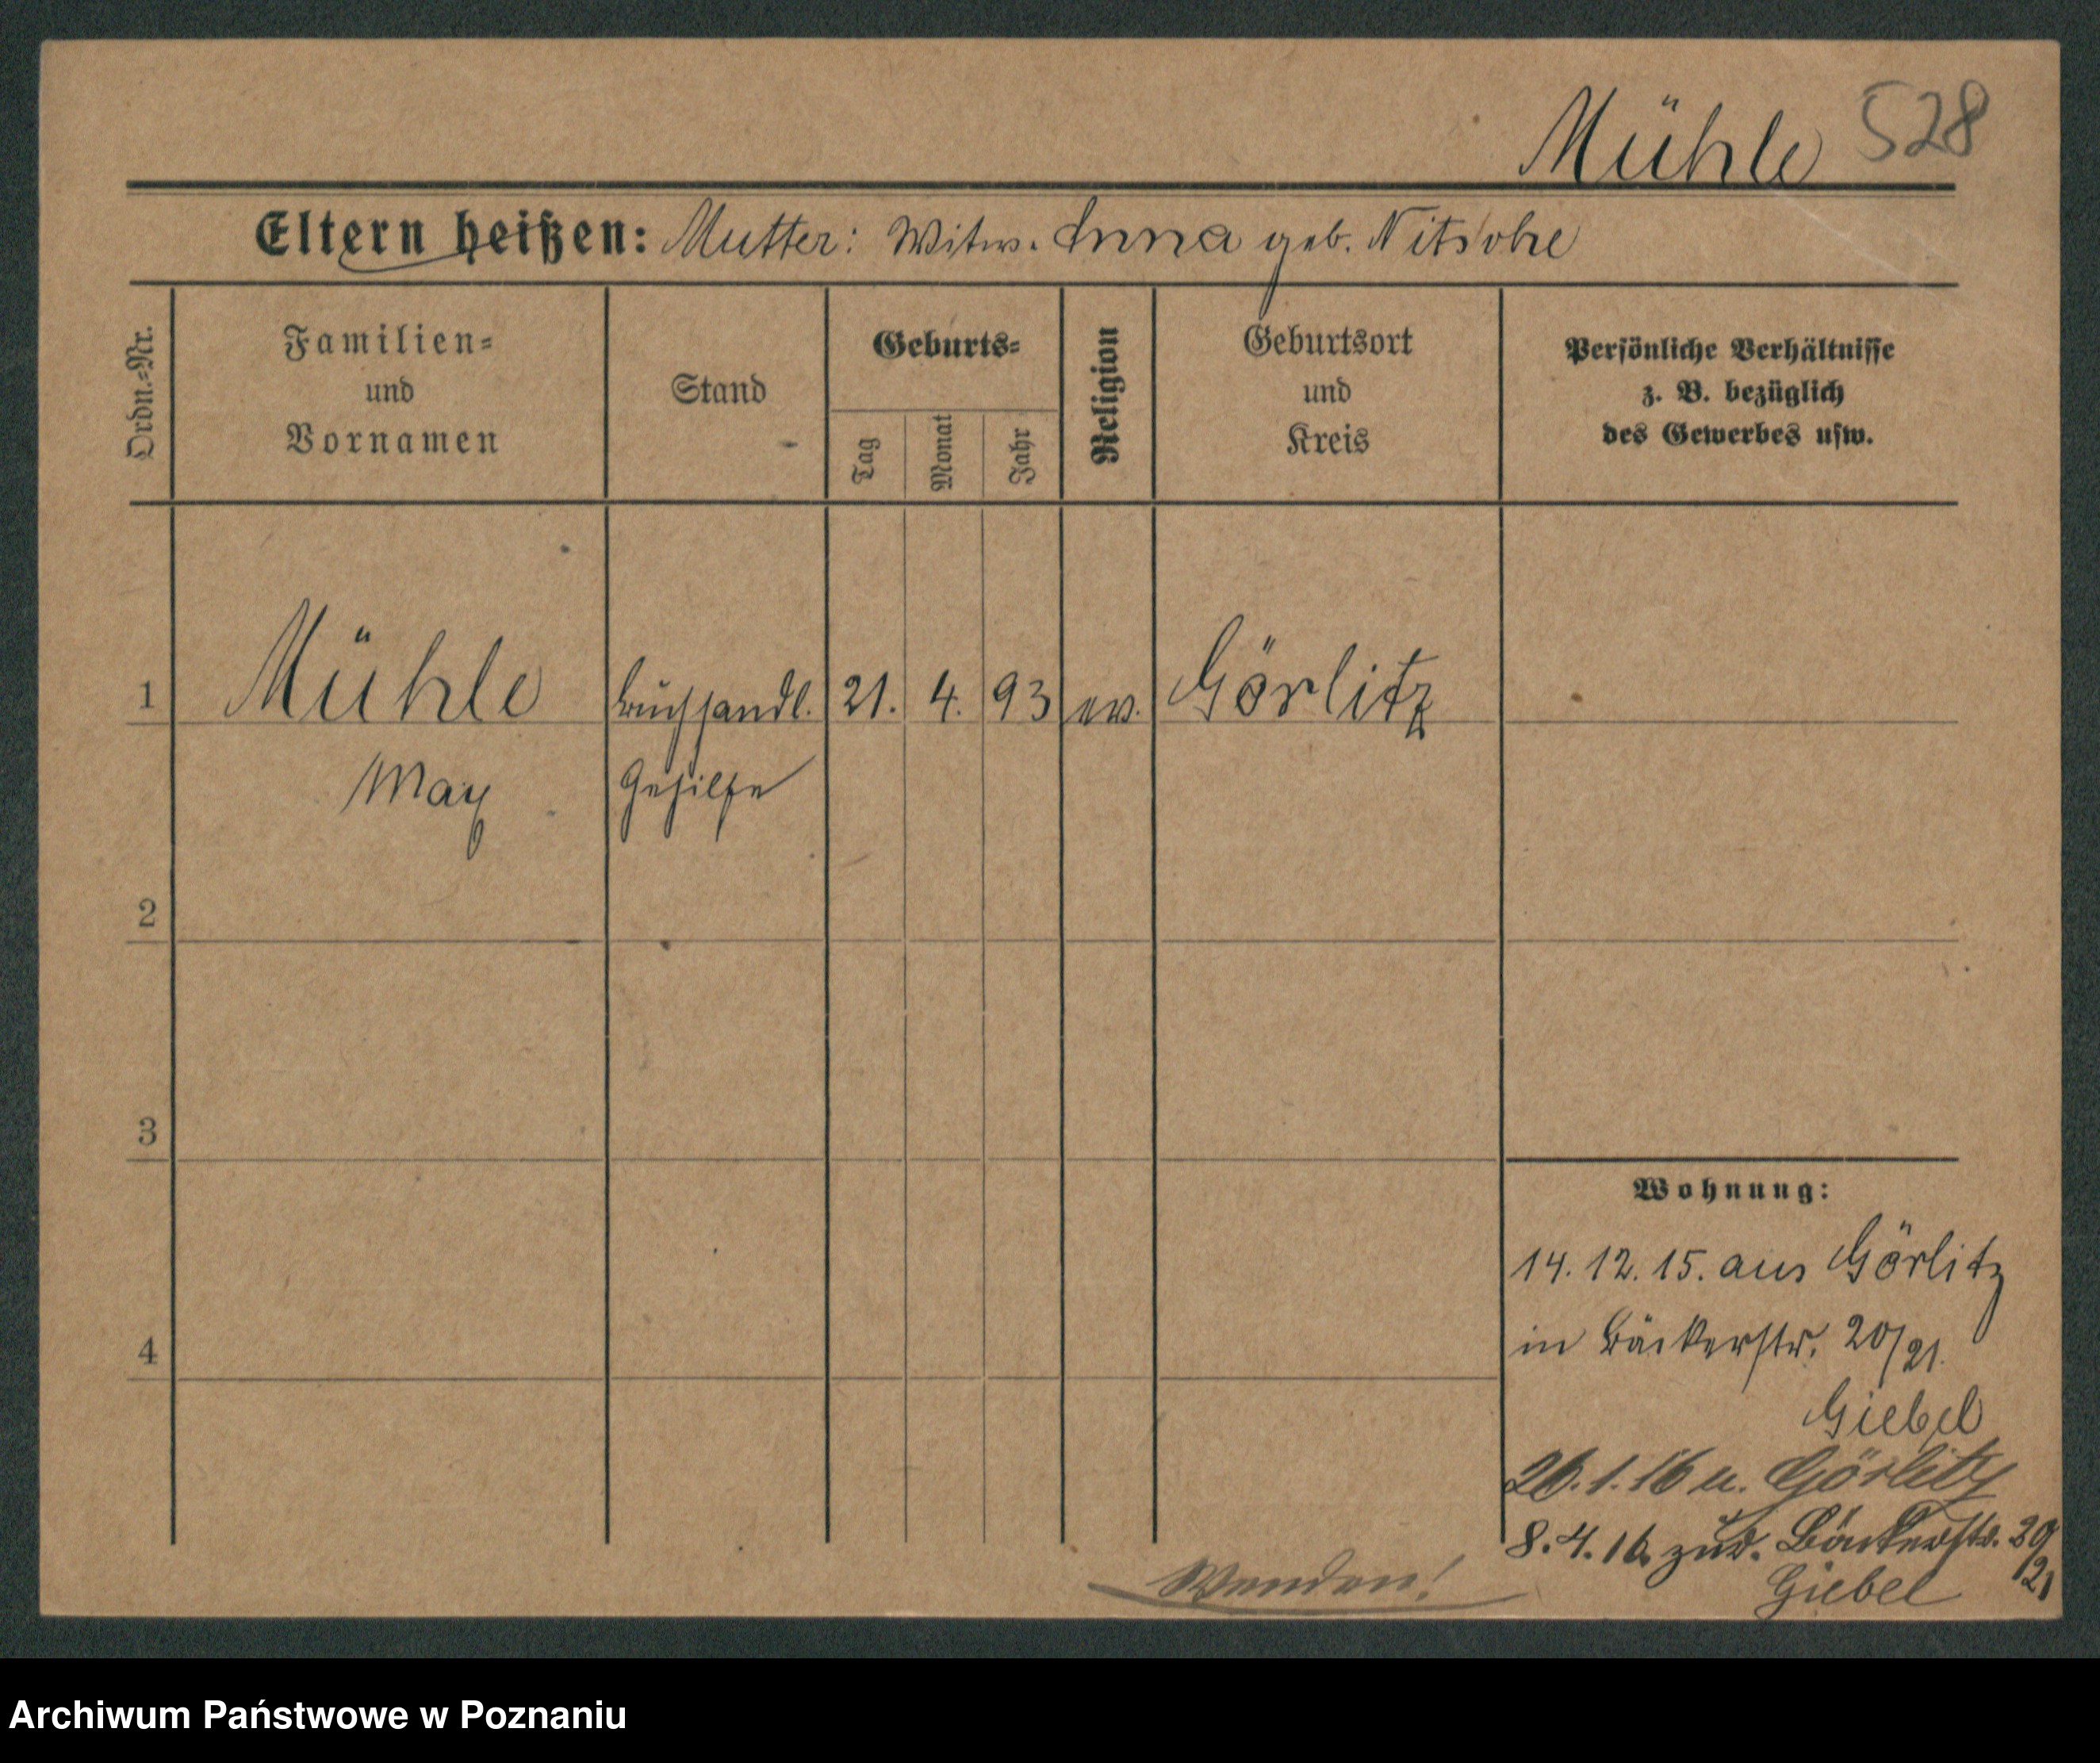 Mühle 528
Eltern heißen: Mutter: Witw. Anna geb. Nitsche
Ordn.=Nr.
Familien=
und
Vornamen
Stand
Geburts=
Tag
Monat
Jahr
Religion
Geburtsort
und
Kreis
Persönliche Verhältnisse
z. B. bezüglich
des Gewerbes usw.
1 Mühle Buchhandl. 21. 4. 93 ev. Görlitz
Max Gehilfe
2
3
4
Wohnung:
14. 12. 15. aus Görlitz
in Bäckerstr. 20/21.
Giebel
26. 1. 16 n. Görlitz
8. 4. 16 zur. Bäckerstr. 20/21
Giebel
Wenden!
Archiwum Państwowe w Poznaniu